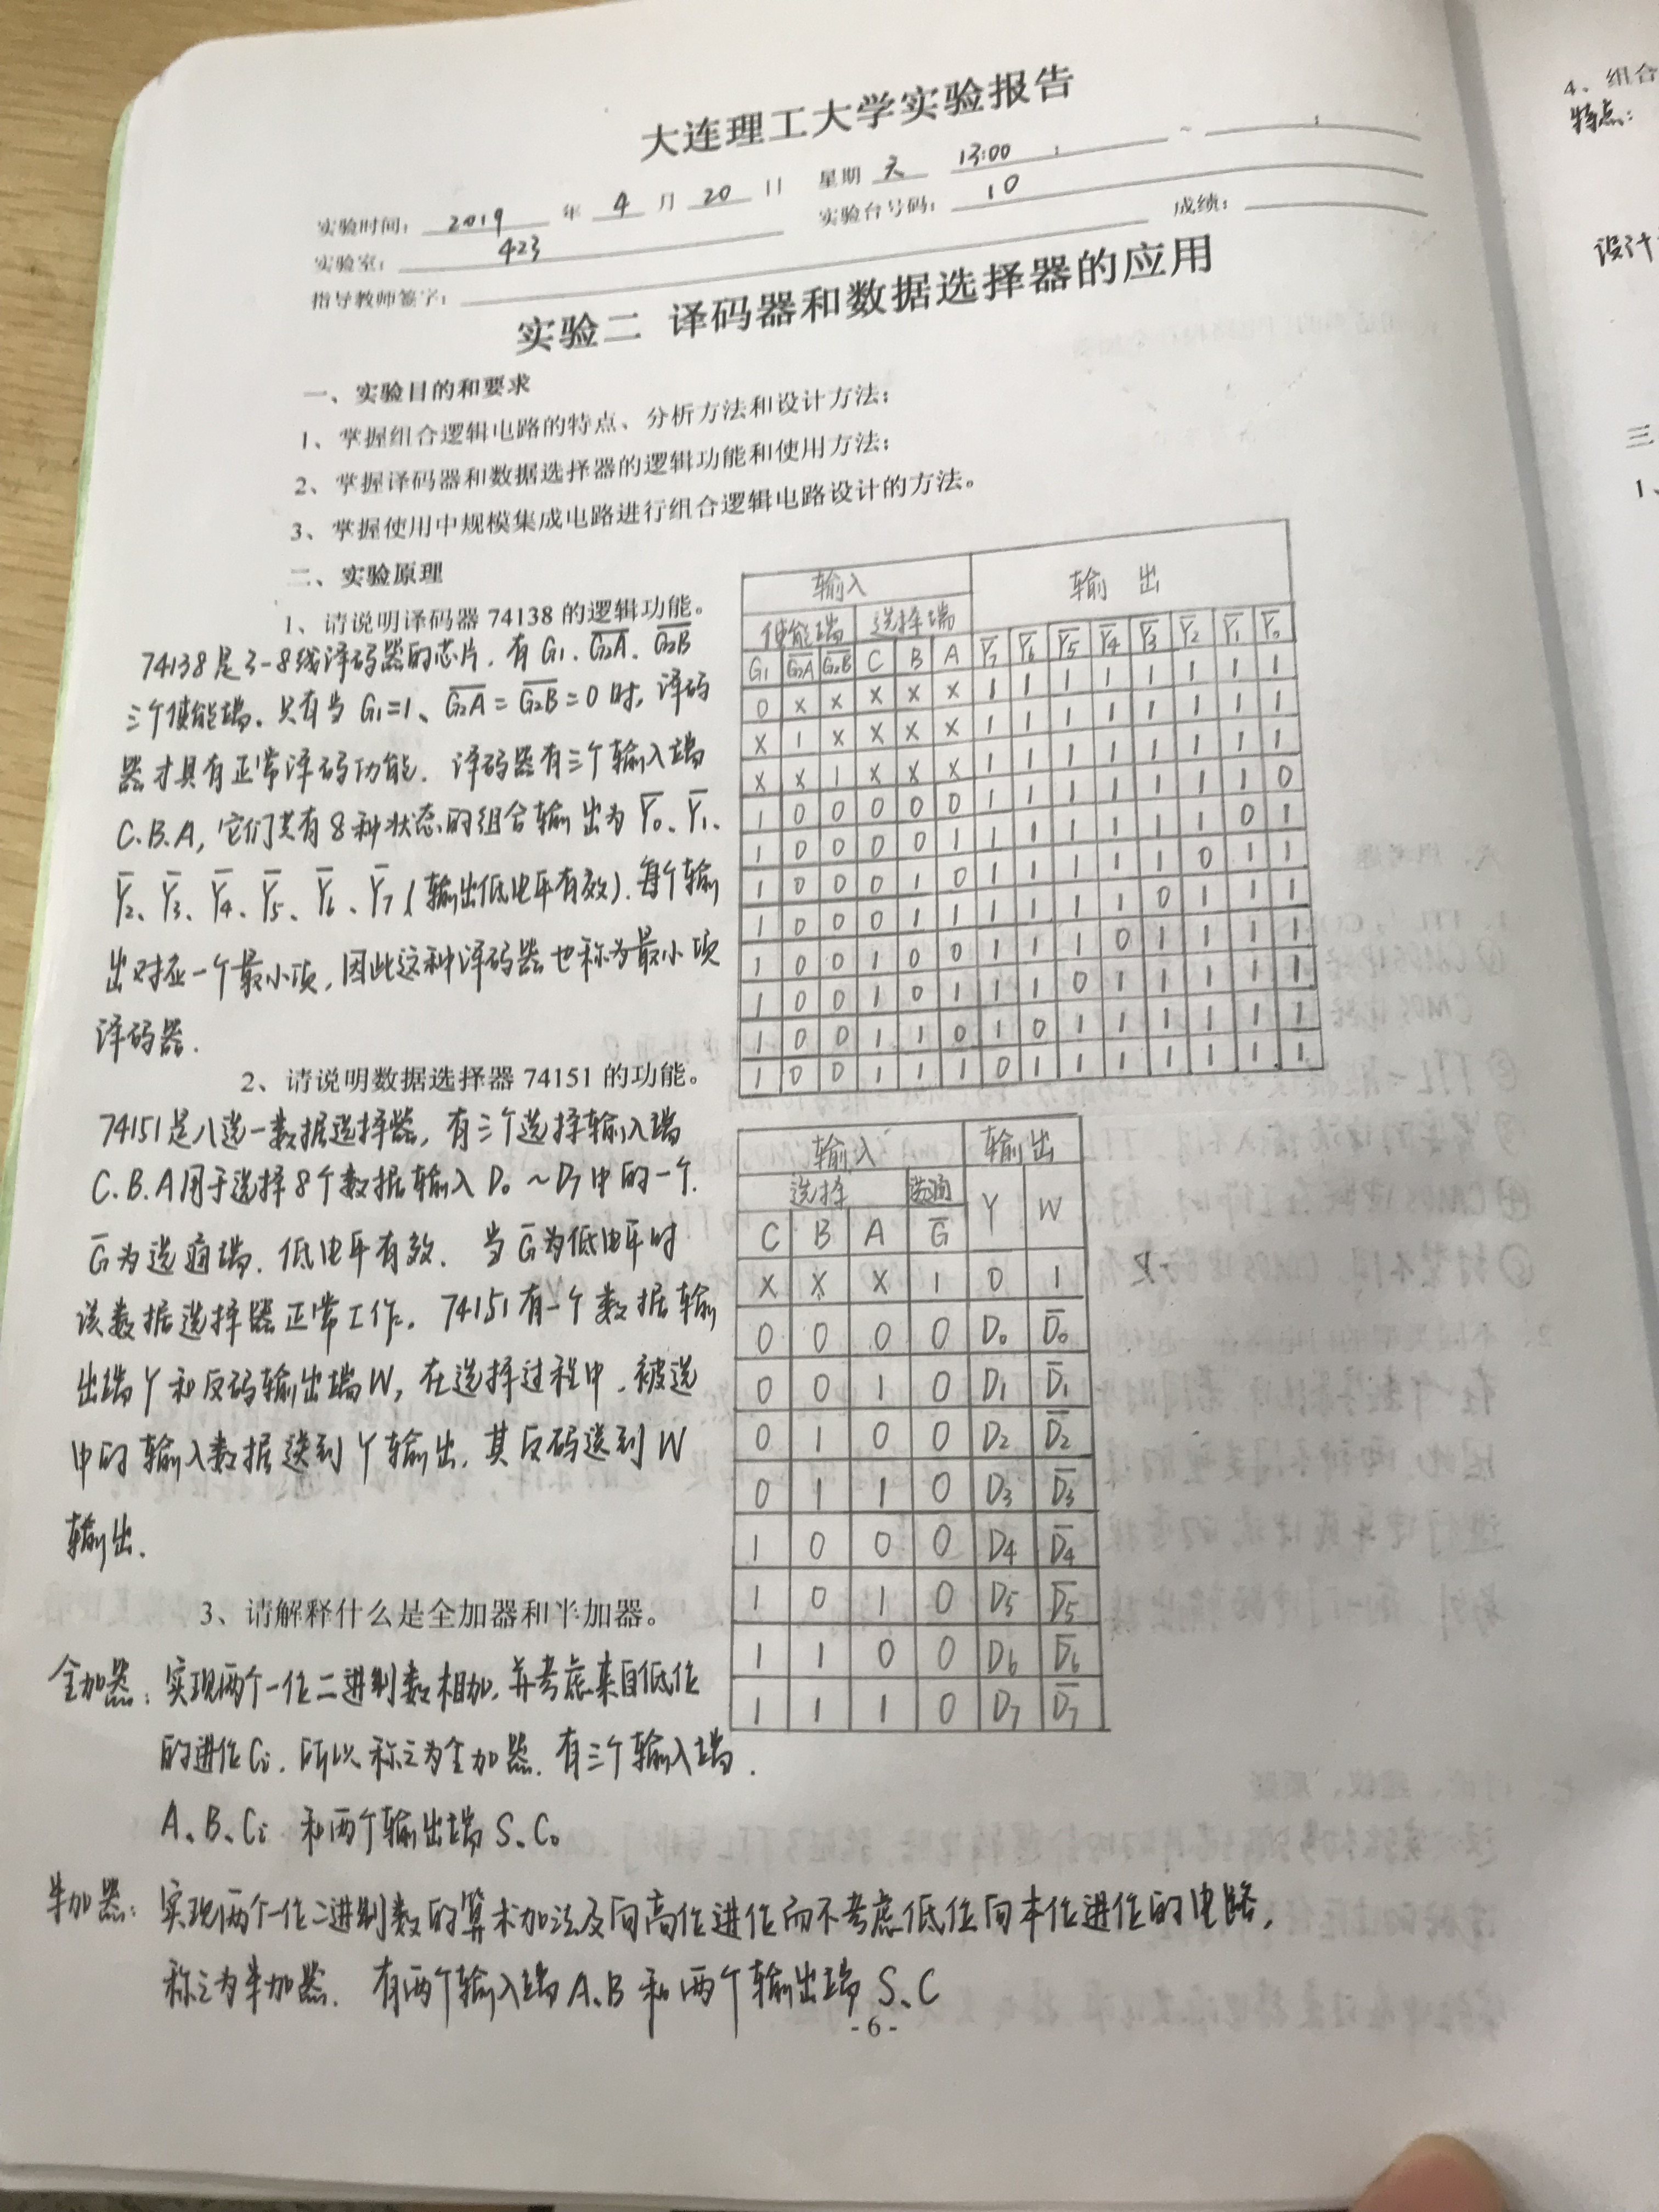 大连理工大学实验报告
实验时间: 2019 年 4 月 20 日 星期 天 13:00 : ~ :
实验室: 423 实验台号码: 10
指导教师签字: 成绩:
实验二 译码器和数据选择器的应用
一、实验目的和要求
1、掌握组合逻辑电路的特点、分析方法和设计方法;
2、掌握译码器和数据选择器的逻辑功能和使用方法;
3、掌握使用中规模集成电路进行组合逻辑电路设计的方法。
二、实验原理
1、请说明译码器 74138 的逻辑功能。
74138是3-8线译码器的芯片,有G₁、G̅₂̅A̅、G̅₂̅B̅
三个使能端、只有当 G₁=1、G̅₂̅A̅=G̅₂̅B̅=0 时,译码
器才具有正常译码功能. 译码器有三个输入端
C.B.A,它们共有8种状态的组合输出为 Y̅₀、Y̅₁、
Y̅₂、Y̅₃、Y̅₄、Y̅₅、Y̅₆、Y̅₇(输出低电平有效).每个输
出对应一个最小项,因此这种译码器也称为最小项
译码器.
输入 输出
使能端 选择端
G₁ G̅₂̅A̅ G̅₂̅B̅ C B A Y̅₇ Y̅₆ Y̅₅ Y̅₄ Y̅₃ Y̅₂ Y̅₁ Y̅₀
0 X X X X X 1 1 1 1 1 1 1 1
X 1 X X X X 1 1 1 1 1 1 1 1
X X 1 X X X 1 1 1 1 1 1 1 1
1 0 0 0 0 0 1 1 1 1 1 1 1 0
1 0 0 0 0 1 1 1 1 1 1 1 0 1
1 0 0 0 1 0 1 1 1 1 1 0 1 1
1 0 0 0 1 1 1 1 1 1 0 1 1 1
1 0 0 1 0 0 1 1 1 0 1 1 1 1
1 0 0 1 0 1 1 1 0 1 1 1 1 1
1 0 0 1 1 0 1 0 1 1 1 1 1 1
1 0 0 1 1 1 0 1 1 1 1 1 1 1
2、请说明数据选择器 74151 的功能。
74151是八选一数据选择器,有三个选择输入端
C.B.A用于选择8个数据输入 D₀~D₇中的一个.
G̅为选通端、低电平有效. 当G̅为低电平时
该数据选择器正常工作. 74151有一个数据输
出端Y和反码输出端W,在选择过程中,被选
中的输入数据送到Y输出,其反码送到W
输出.
输入 输出
选择 选通 Y W
C B A G̅
X X X 1 0 1
0 0 0 0 D₀ D̅₀
0 0 1 0 D₁ D̅₁
0 1 0 0 D₂ D̅₂
0 1 1 0 D₃ D̅₃
1 0 0 0 D₄ D̅₄
1 0 1 0 D₅ D̅₅
1 1 0 0 D₆ D̅₆
1 1 1 0 D₇ D̅₇
3、请解释什么是全加器和半加器。
全加器: 实现两个一位二进制数相加,并考虑来自低位
的进位Ci,所以称之为全加器.有三个输入端.
A、B、Ci 和两个输出端 S、C₀
半加器: 实现两个一位二进制数的算术加法及向高位进位而不考虑低位向本位进位的电路,
称之为半加器. 有两个输入端A、B和两个输出端 S、C
- 6 -
4、组合
特点:
设计
三
1、